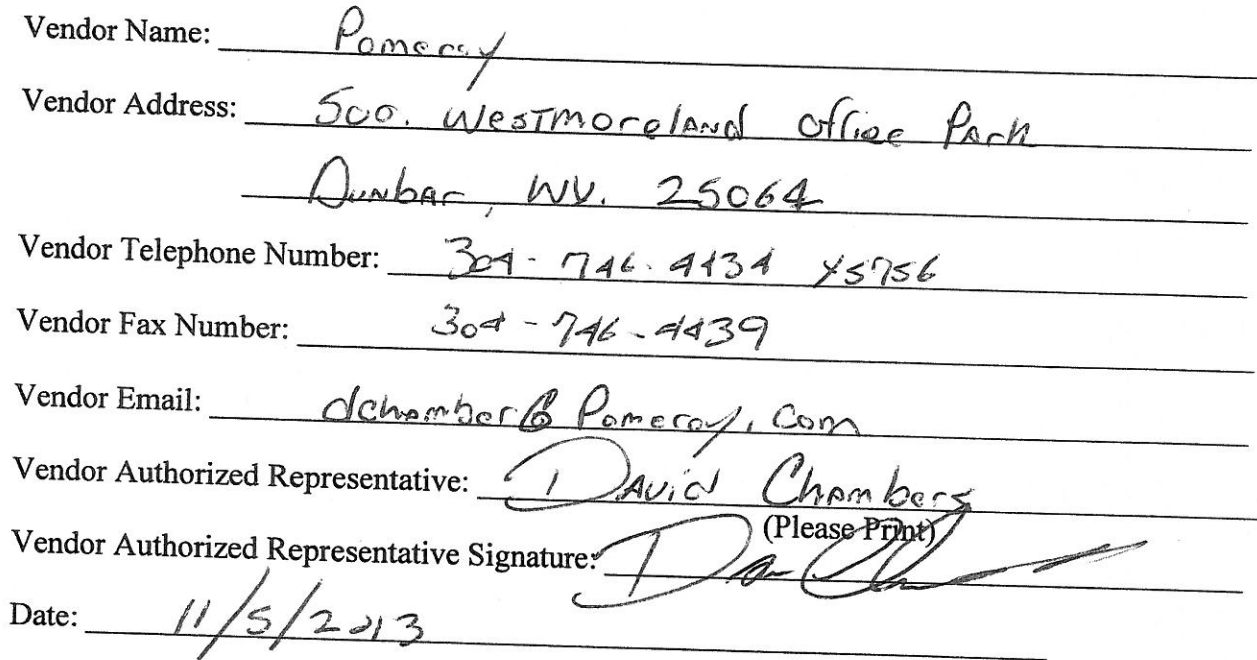 Vendor Name: Pomeroy
Vendor Address: 500. Westmoreland Office Park
Dunbar, WV. 25064
Vendor Telephone Number: 304-746-4434 x5756
Vendor Fax Number: 304-746-4439
Vendor Email: dchamber@Pomeroy.com
Vendor Authorized Representative: David Chambers
(Please Print)
Vendor Authorized Representative Signature:
Date: 11/5/2013